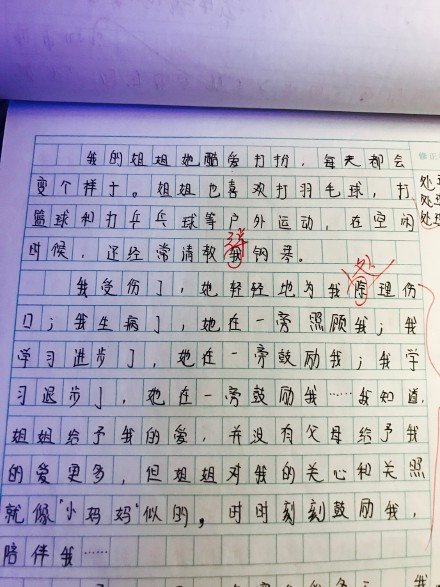 我的姐姐她酷爱打扮，每天都会
变个样子。姐姐也喜欢打羽毛球，打
篮球和打乒乓球等户外运动，在空闲
时候，还经常清教我钢琴。
弹
我受伤了，她轻轻地为我原理伤
处
口；我生病了，她在一旁照顾我；我
学习进步了，她在一旁鼓励我；我学
习退步了，她在一旁鼓励我……我知道，
姐姐给予我的爱，并没有父母给予我
的爱更多，但姐姐对我的关心和关照
就像“小妈妈”似的，时时刻刻鼓励我，
陪伴我……
修正
处理
处理
处理